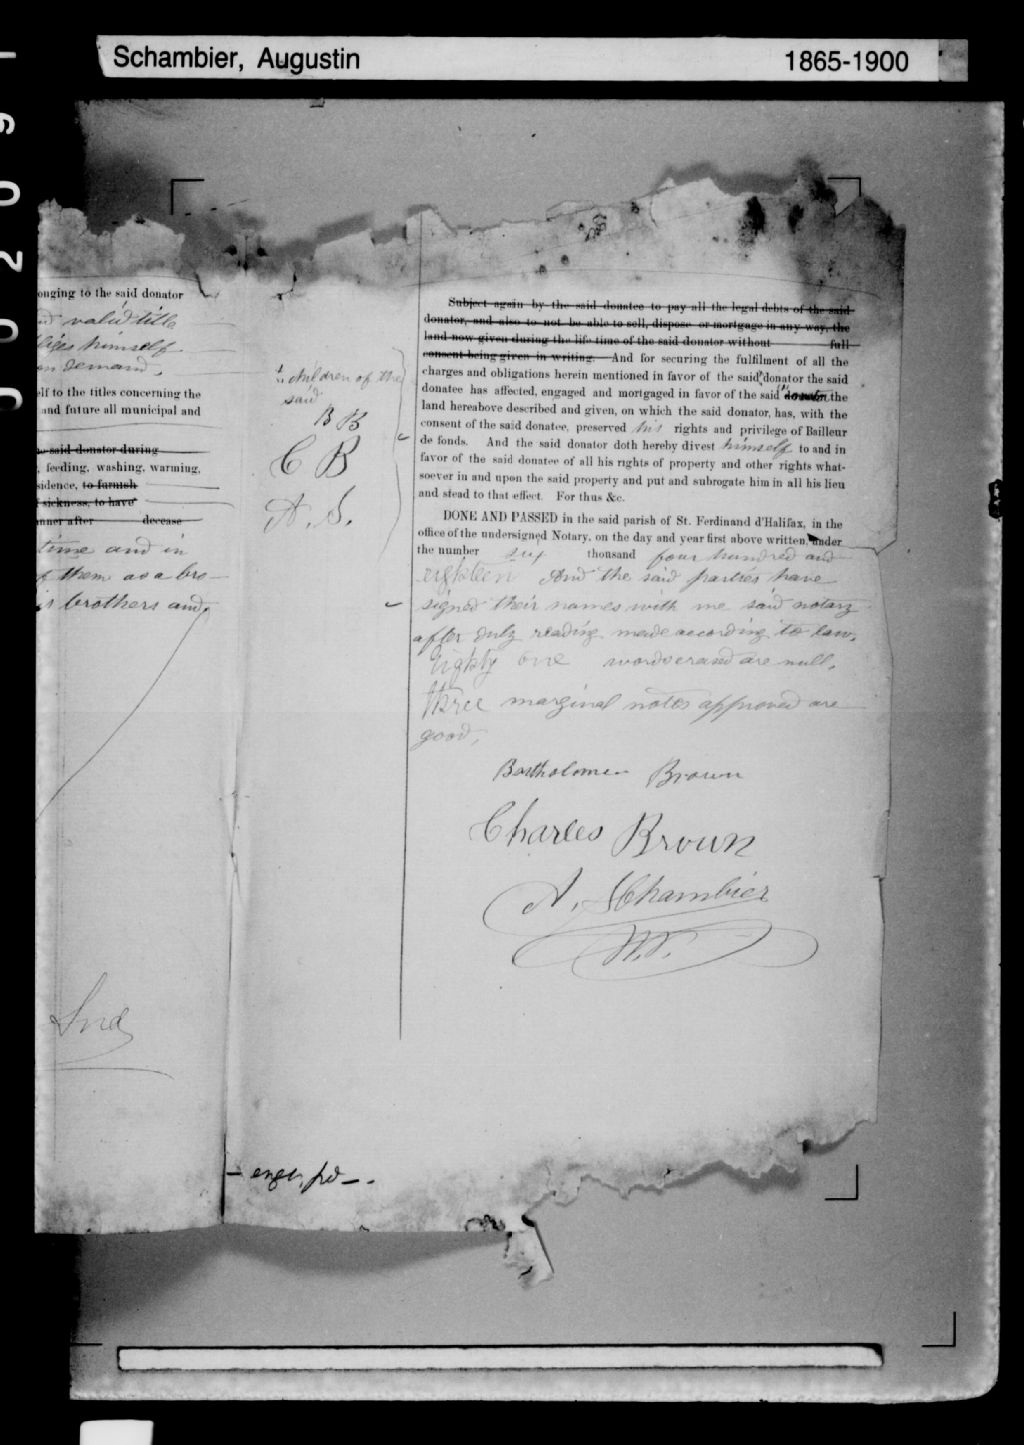 Schambier, Augustin 1865-1900
onging to the said donator
valid title
liges himself
on demand,
elf to the titles concerning the
and future all municipal and
e said donator during
, feeding, washing, warming,
sidence, to furnish
f sickness, to have
anner after decease
time and in
f them as a bro-
ir brothers and
children of the
said
B B
C B
A. S.
Subject again by the said donatee to pay all the legal debts of the said
donator, and also to not be able to sell, dispose or mortgage in any way, the
land now given during the life time of the said donator without full
consent being given in writing. And for securing the fulfilment of all the
charges and obligations herein mentioned in favor of the said donator the said
donatee has affected, engaged and mortgaged in favor of the said donator the
land hereabove described and given, on which the said donator, has, with the
consent of the said donatee, preserved his rights and privilege of Bailleur
de fonds. And the said donator doth hereby divest himself to and in
favor of the said donatee of all his rights of property and other rights what-
soever in and upon the said property and put and subrogate him in all his lieu
and stead to that effect. For thus &c.
DONE AND PASSED in the said parish of St. Ferdinand d'Halifax, in the
office of the undersigned Notary, on the day and year first above written, under
the number six thousand four hundred and
eighteen And the said parties have
signed their names with me said notary
after duly reading made according to law.
Eighty one words erased are null,
three marginal notes approved are
good,
Bartholomew Brown
Charles Broun
A. SChambier
N.P.